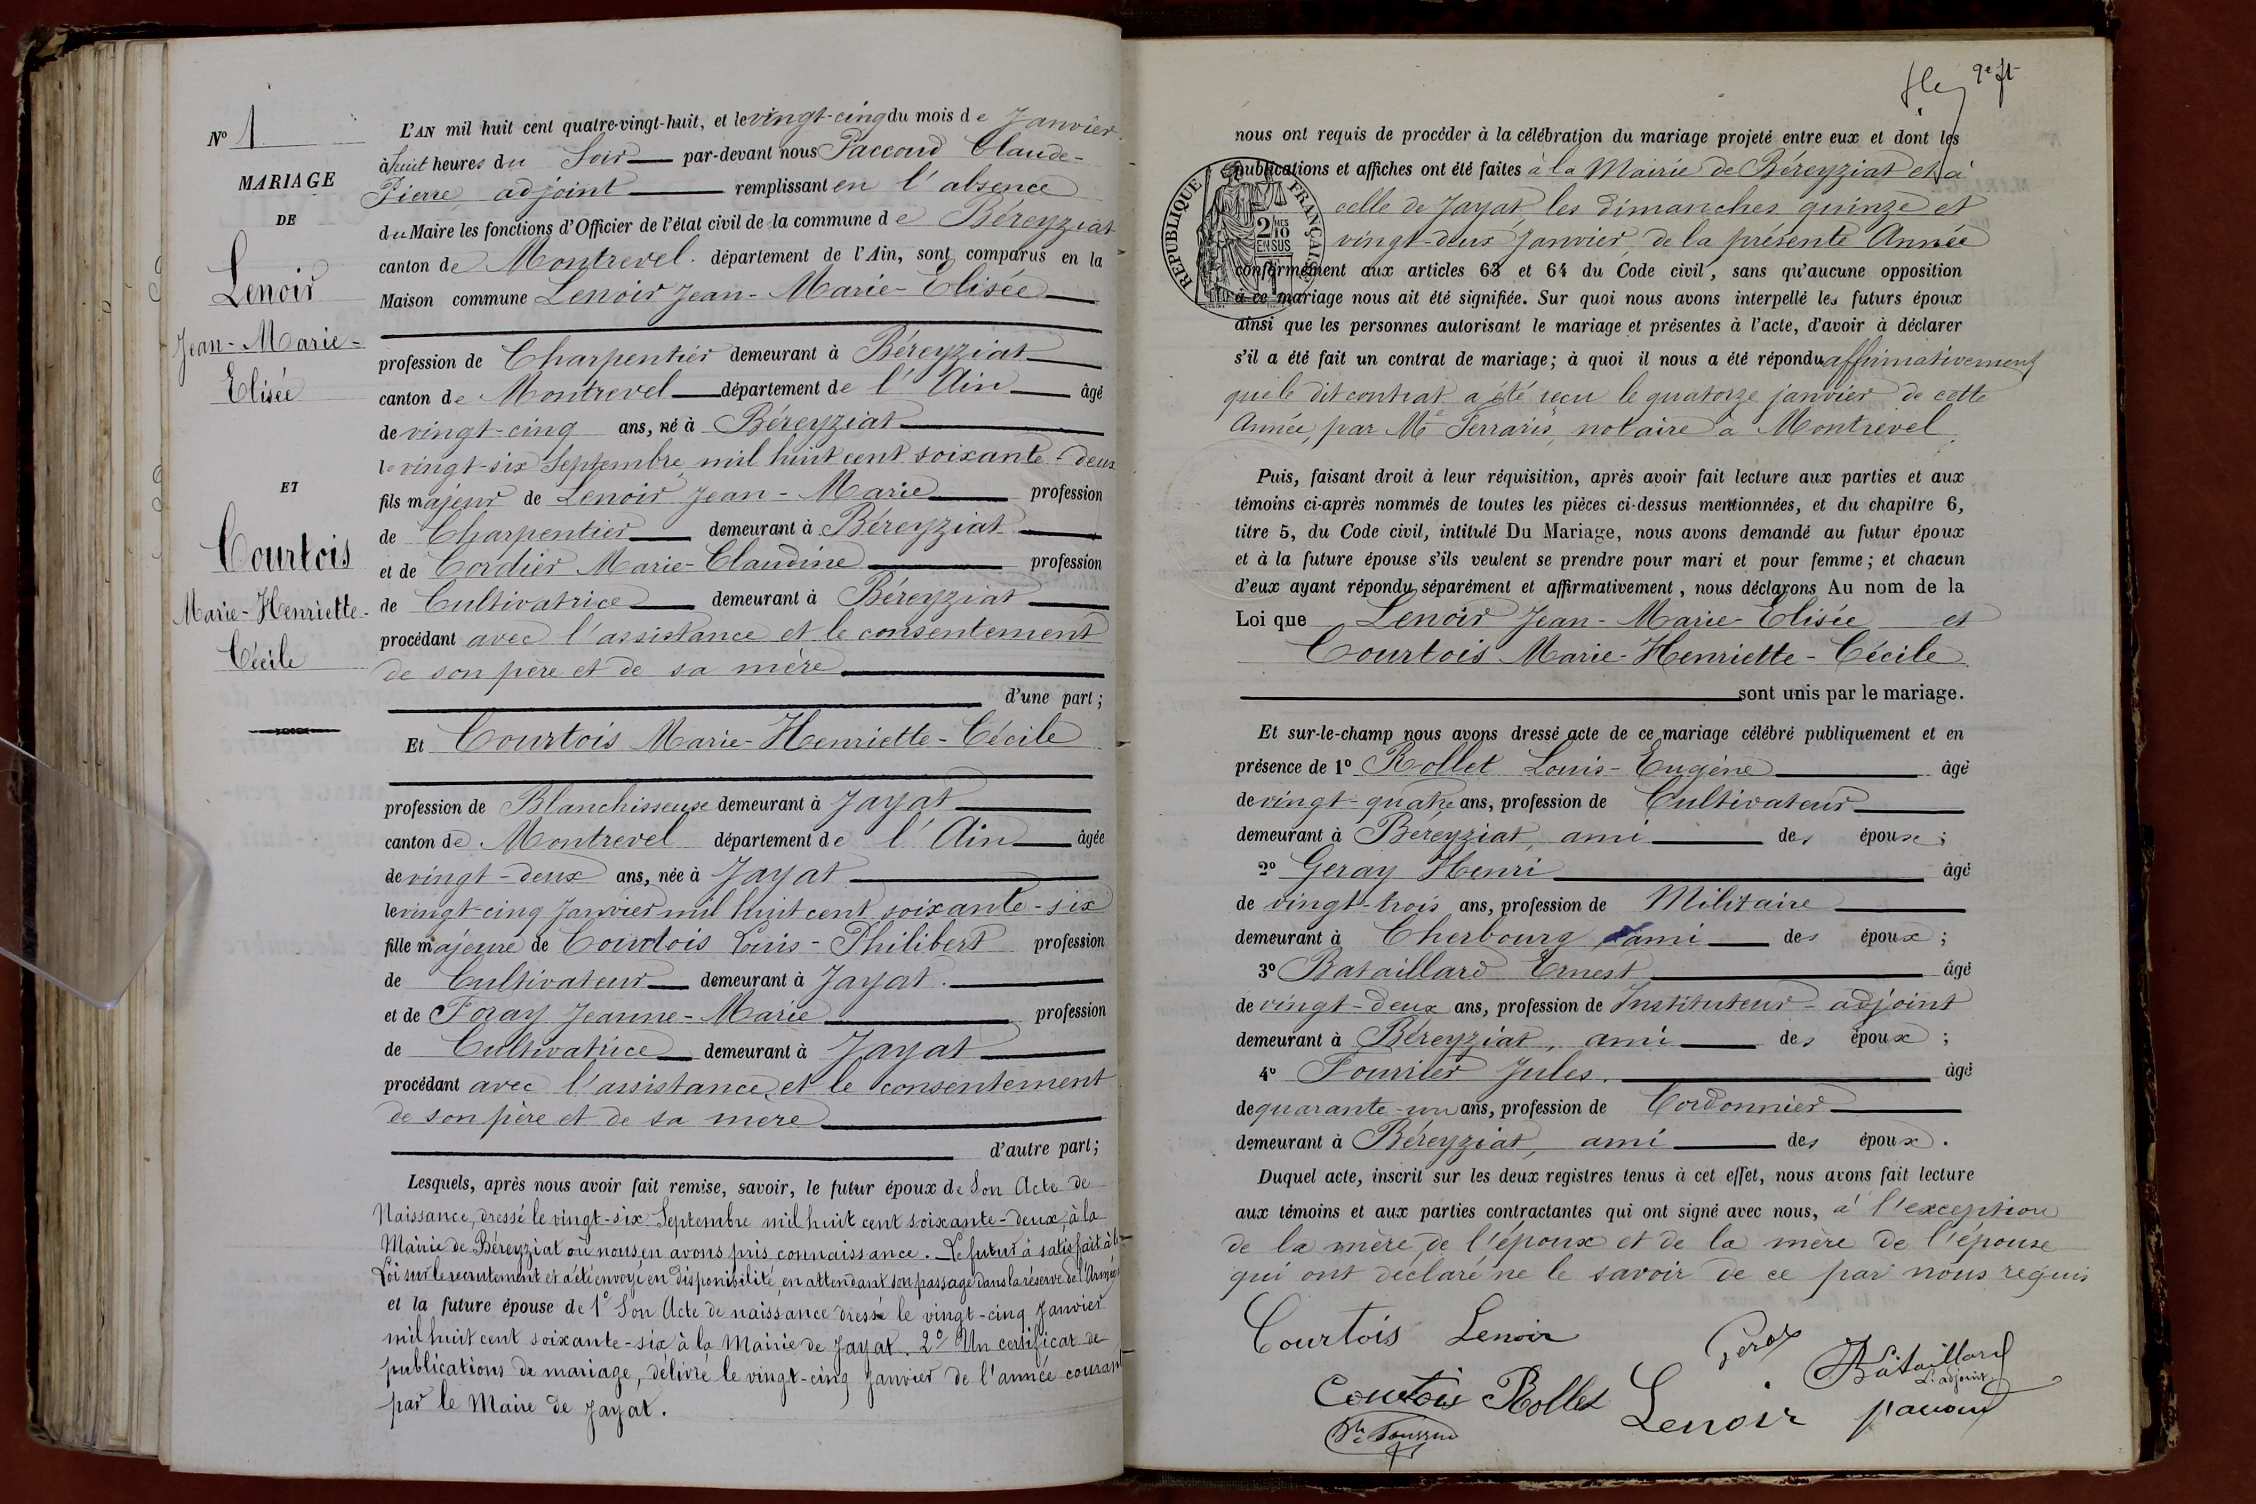 N° 1
MARIAGE
DE
Lenoir
Jean-Marie-
Elisée
ET
Courtois
Marie-Henriette-
Cécile
L'AN mil huit cent quatre-vingt-huit, et le vingt-cinq du mois de Janvier
à huit heures du Soir par-devant nous Paccoud Claude-
Pierre, adjoint remplissant en l'absence
du Maire les fonctions d'Officier de l'état civil de la commune de Béreyziat
canton de Montrevel. département de l'Ain, sont comparus en la
Maison commune Lenoir Jean-Marie-Elisée
profession de Charpentier demeurant à Béreyziat
canton de Montrevel département de l'Ain âgé
de vingt-cinq ans, né à Béreyziat
le vingt-six Septembre mil huit cent soixante-deux
fils majeur de Lenoir Jean-Marie profession
de Charpentier demeurant à Béreyziat
et de Cordier Marie-Claudine profession
de Cultivatrice demeurant à Béreyziat
procédant avec l'assistance et le consentement
de son père et de sa mère
d'une part;
Et Courtois Marie-Henriette-Cécile
profession de Blanchisseuse demeurant à Jayat
canton de Montrevel département de l'Ain âgée
de vingt-deux ans, née à Jayat
le vingt-cinq Janvier mil huit cent soixante-six
fille majeure de Courtois Louis-Philibert profession
de Cultivateur demeurant à Jayat.
et de Foray Jeanne-Marie profession
de Cultivatrice demeurant à Jayat
procédant avec l'assistance et le consentement
de son père et de sa mère
d'autre part;
Lesquels, après nous avoir fait remise, savoir, le futur époux de Son Acte de
Naissance, dressé le vingt-six Septembre mil huit cent soixante-deux, à la
Mairie de Béreyziat où nous en avons pris connaissance. Le futur à satisfait à la
Loi sur le recrutement et a été envoyé en disponibilité, en attendant son passage dans la réserve de l'Armée
et la future épouse de 1° Son Acte de naissance dressé le vingt-cinq Janvier
mil huit cent soixante-six à la Mairie de Jayat. 2° Un certificat de
publications de mariage, délivré le vingt-cinq Janvier de l'année courant
par le Maire de Jayat.
9e ft
nous ont requis de procéder à la célébration du mariage projeté entre eux et dont les
publications et affiches ont été faites à la Mairie de Béreyziat et à
celle de Jayat, les dimanches quinze et
vingt-deux Janvier de la présente Année
REPUBLIQUE FRANÇAISE
2/10 MES
EN SUS
conformément aux articles 63 et 64 du Code civil, sans qu'aucune opposition
à ce mariage nous ait été signifiée. Sur quoi nous avons interpellé les futurs époux
ainsi que les personnes autorisant le mariage et présentes à l'acte, d'avoir à déclarer
s'il a été fait un contrat de mariage; à quoi il nous a été répondu affirmativement
que le dit contrat a été reçu le quatorze janvier de cette
Année, par Me Ferraris, notaire à Montrevel.
Puis, faisant droit à leur réquisition, après avoir fait lecture aux parties et aux
témoins ci-après nommés de toutes les pièces ci-dessus mentionnées, et du chapitre 6,
titre 5, du Code civil, intitulé Du Mariage, nous avons demandé au futur époux
et à la future épouse s'ils veulent se prendre pour mari et pour femme; et chacun
d'eux ayant répondu séparément et affirmativement, nous déclarons Au nom de la
Loi que Lenoir Jean-Marie-Elisée et
Courtois Marie-Henriette-Cécile
sont unis par le mariage.
Et sur-le-champ nous avons dressé acte de ce mariage célébré publiquement et en
présence de 1° Rollet Louis-Eugène âgé
de vingt-quatre ans, profession de Cultivateur
demeurant à Béreyziat, ami des époux;
2° Geray Henri âgé
de vingt-trois ans, profession de Militaire
demeurant à Cherbourg, ami des époux;
3° Bataillard Ernest âgé
de vingt-deux ans, profession de Instituteur-adjoint
demeurant à Béreyziat, ami des époux;
4° Fourrier Jules. âgé
de quarante-un ans, profession de Cordonnier
demeurant à Béreyziat, ami des époux.
Duquel acte, inscrit sur les deux registres tenus à cet effet, nous avons fait lecture
aux témoins et aux parties contractantes qui ont signé avec nous, à l'exception
de la mère de l'époux et de la mère de l'épouse
qui ont déclaré ne le savoir de ce par nous requis
Courtois Lenoir
Bataillard
I. adjoint
Courtois Rollet Lenoir Paccoud